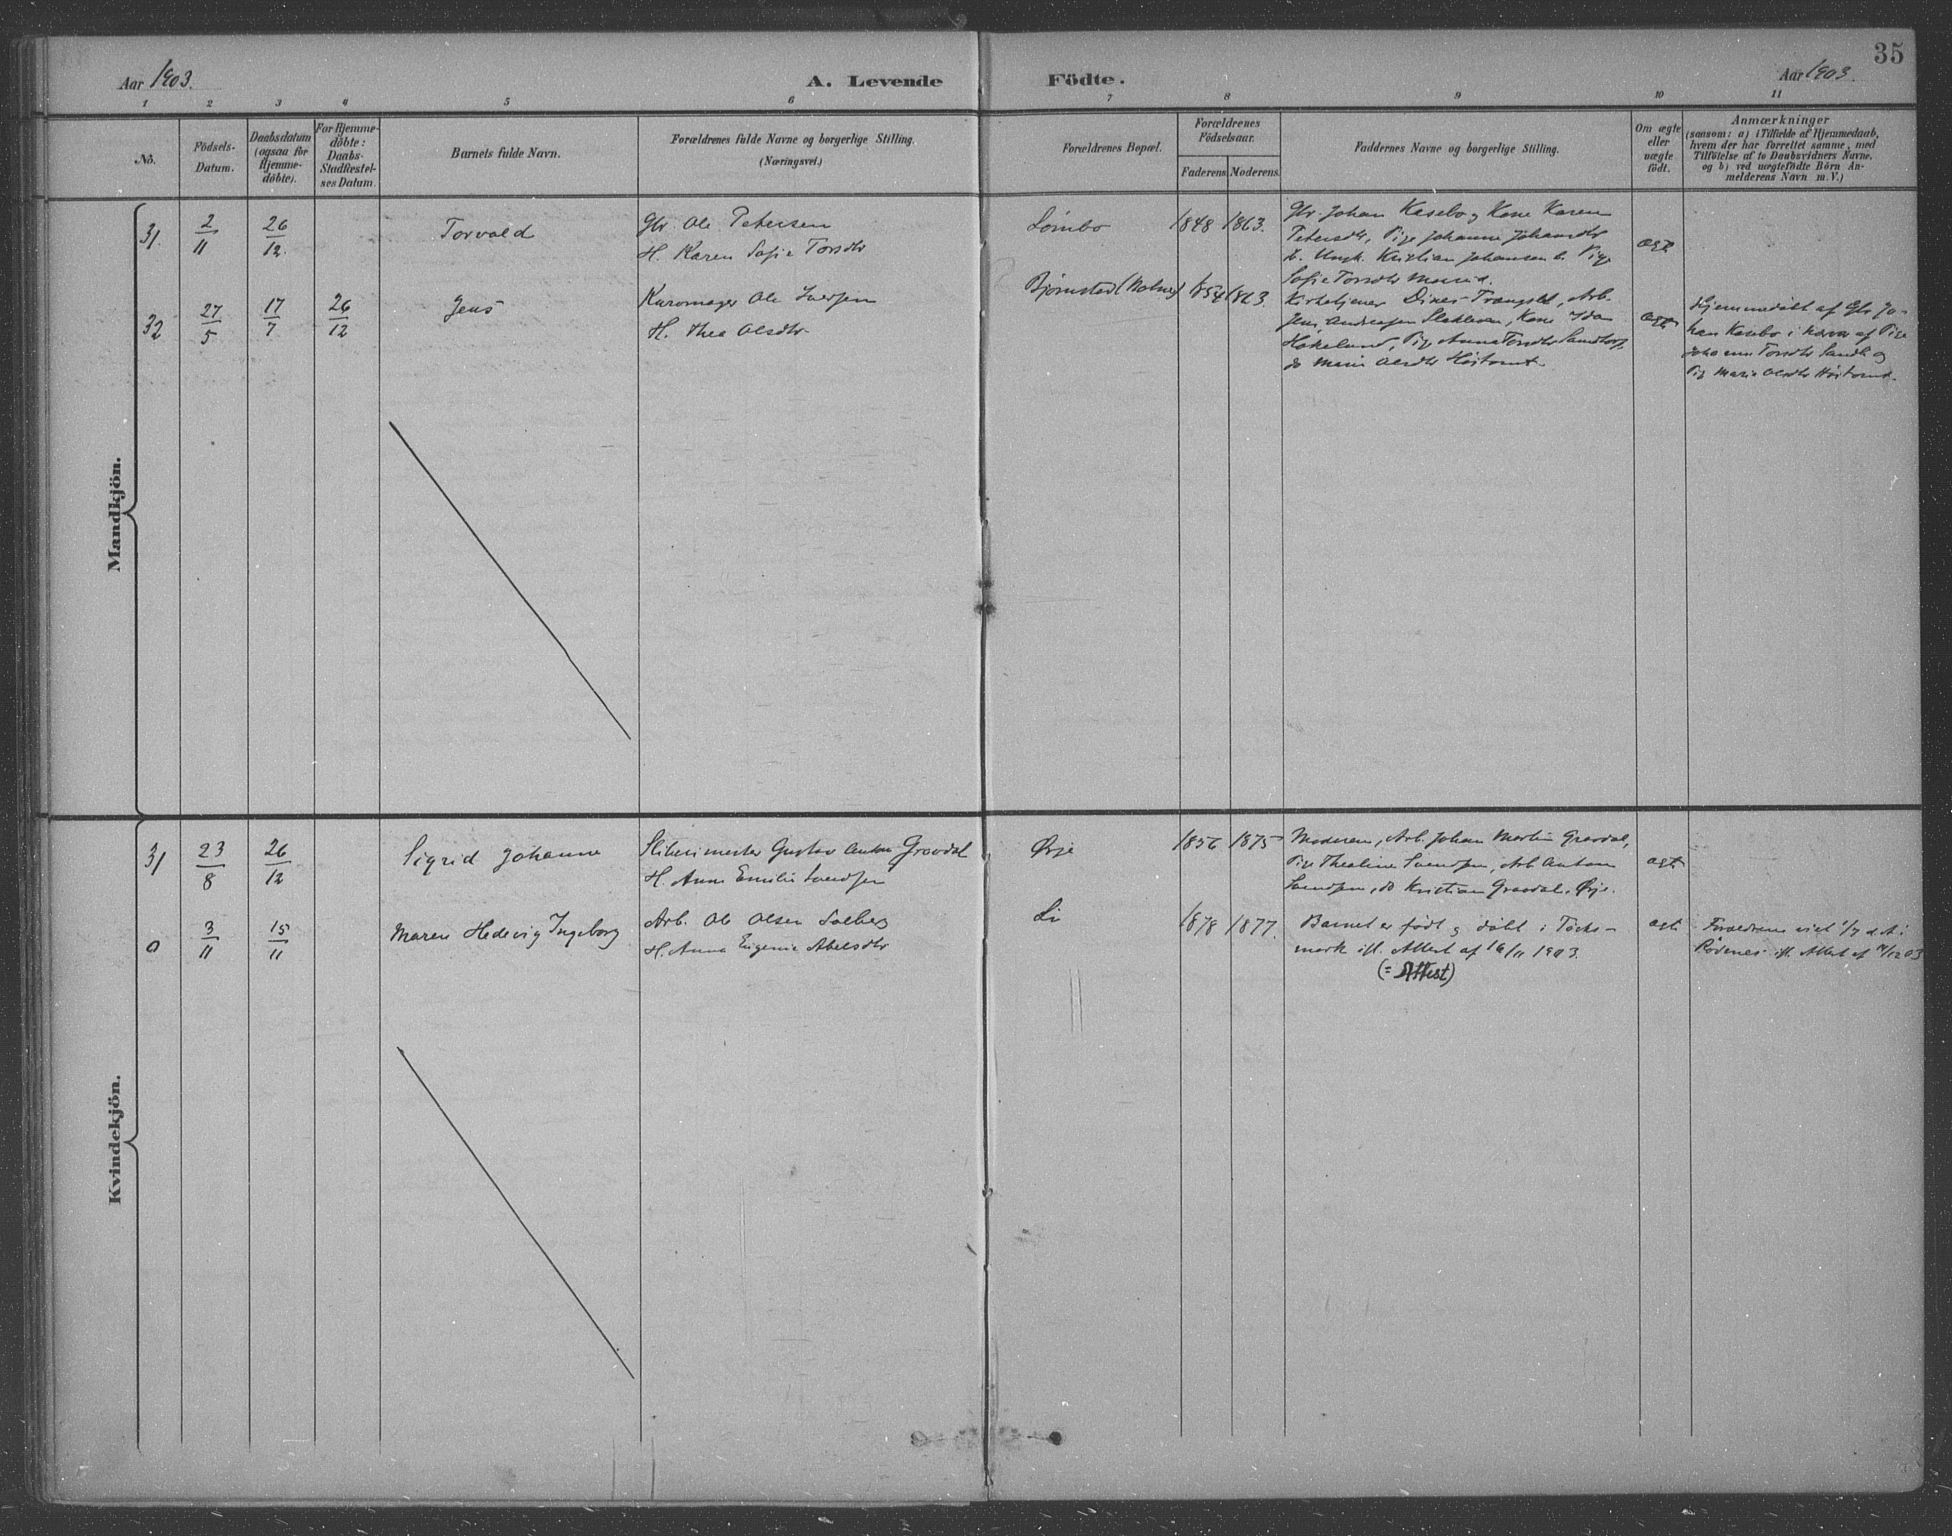 35
Aar 1903.
A. Levende Födte.
Aar 1903.
1 2 3 4 5 6 7 8 9 10 11
No.
Födsels-
Datum.
Daabsdatum
(ogsaa for
Hjemme-
döbte).
For Hjemme-
döbte:
Daabs-
Stadfæstel-
ses Datum.
Barnets fulde Navn.
Forældrenes fulde Navne og borgerlige Stilling.
(Næringsvei.)
Forældrenes Bopæl.
Forældrenes
Födselsaar.
Faderens. Moderens.
Faddernes Navne og borgerlige Stilling.
Om ægte
eller
uægte
födt.
Anmærkninger
(saasom: a) i Tilfælde af Hjemmedaab,
hvem der har forrettet samme, med
Tilföielse af to Daabsvidners Navne,
og b) ved uægtefödte Börn An-
melderens Navn m. V.)
Mandkjön.
31. 2/11 26/12. Torvald
Gbr. Ole Petersen
H. Karen Sofie Torsdtr
Lømbo 1848 1863.
Gbr. Johan Kasebo, Kone Karen
Petersdtr, Pige Johanne Johansdtr
b. Ungk. Kristian Johansen b. Pige
Sofie Torsdtr
ægte
32 27/5 17/7 26/12 Jens
Ole Iversen
H. Thea Olsdtr
Bjørnstad (Holmen) 1854 1863.
Kirketjener Dines Trangsled, Arb.
Jens Andreasen Kone Ida
Hokelund, Pige Anna Torsdtr Sandtorp,
do Marie Olsdtr Høitomt
ægte
Hjemmedøbt af Gbr Jo-
han Kasebo i nærvær af Pige
Johanne Torsdtr Sandt. og
Pig. Marie Olsdtr Høitomt.
Kvindekjön.
31 23/8 26/12 Sigrid Johanne
Sliberimester Gustav Anton Graadal
H. Anne Emilie Svendsen
Ørje 1856 1875
Moderen, Arb. Johan Martin Graadal,
Pige Thealine Svendsen, Arb Anton
Svendsen, do Kristian Graadal, Ørje.
ægte
0 3/11 15/11 Maren Hedevig Ingeborg
Arb. Ole Olsen Solberg
H. Anna Eugenie Abelsdtr
Li 1878 1877.
Barnet er født og døbt i Töcks-
mark ifl. Attest af 16/11 1903.
(= Attest)
ægte
Forældrene viet 1/7 d. A. i
Rødenes ifl. Attest af 12 03